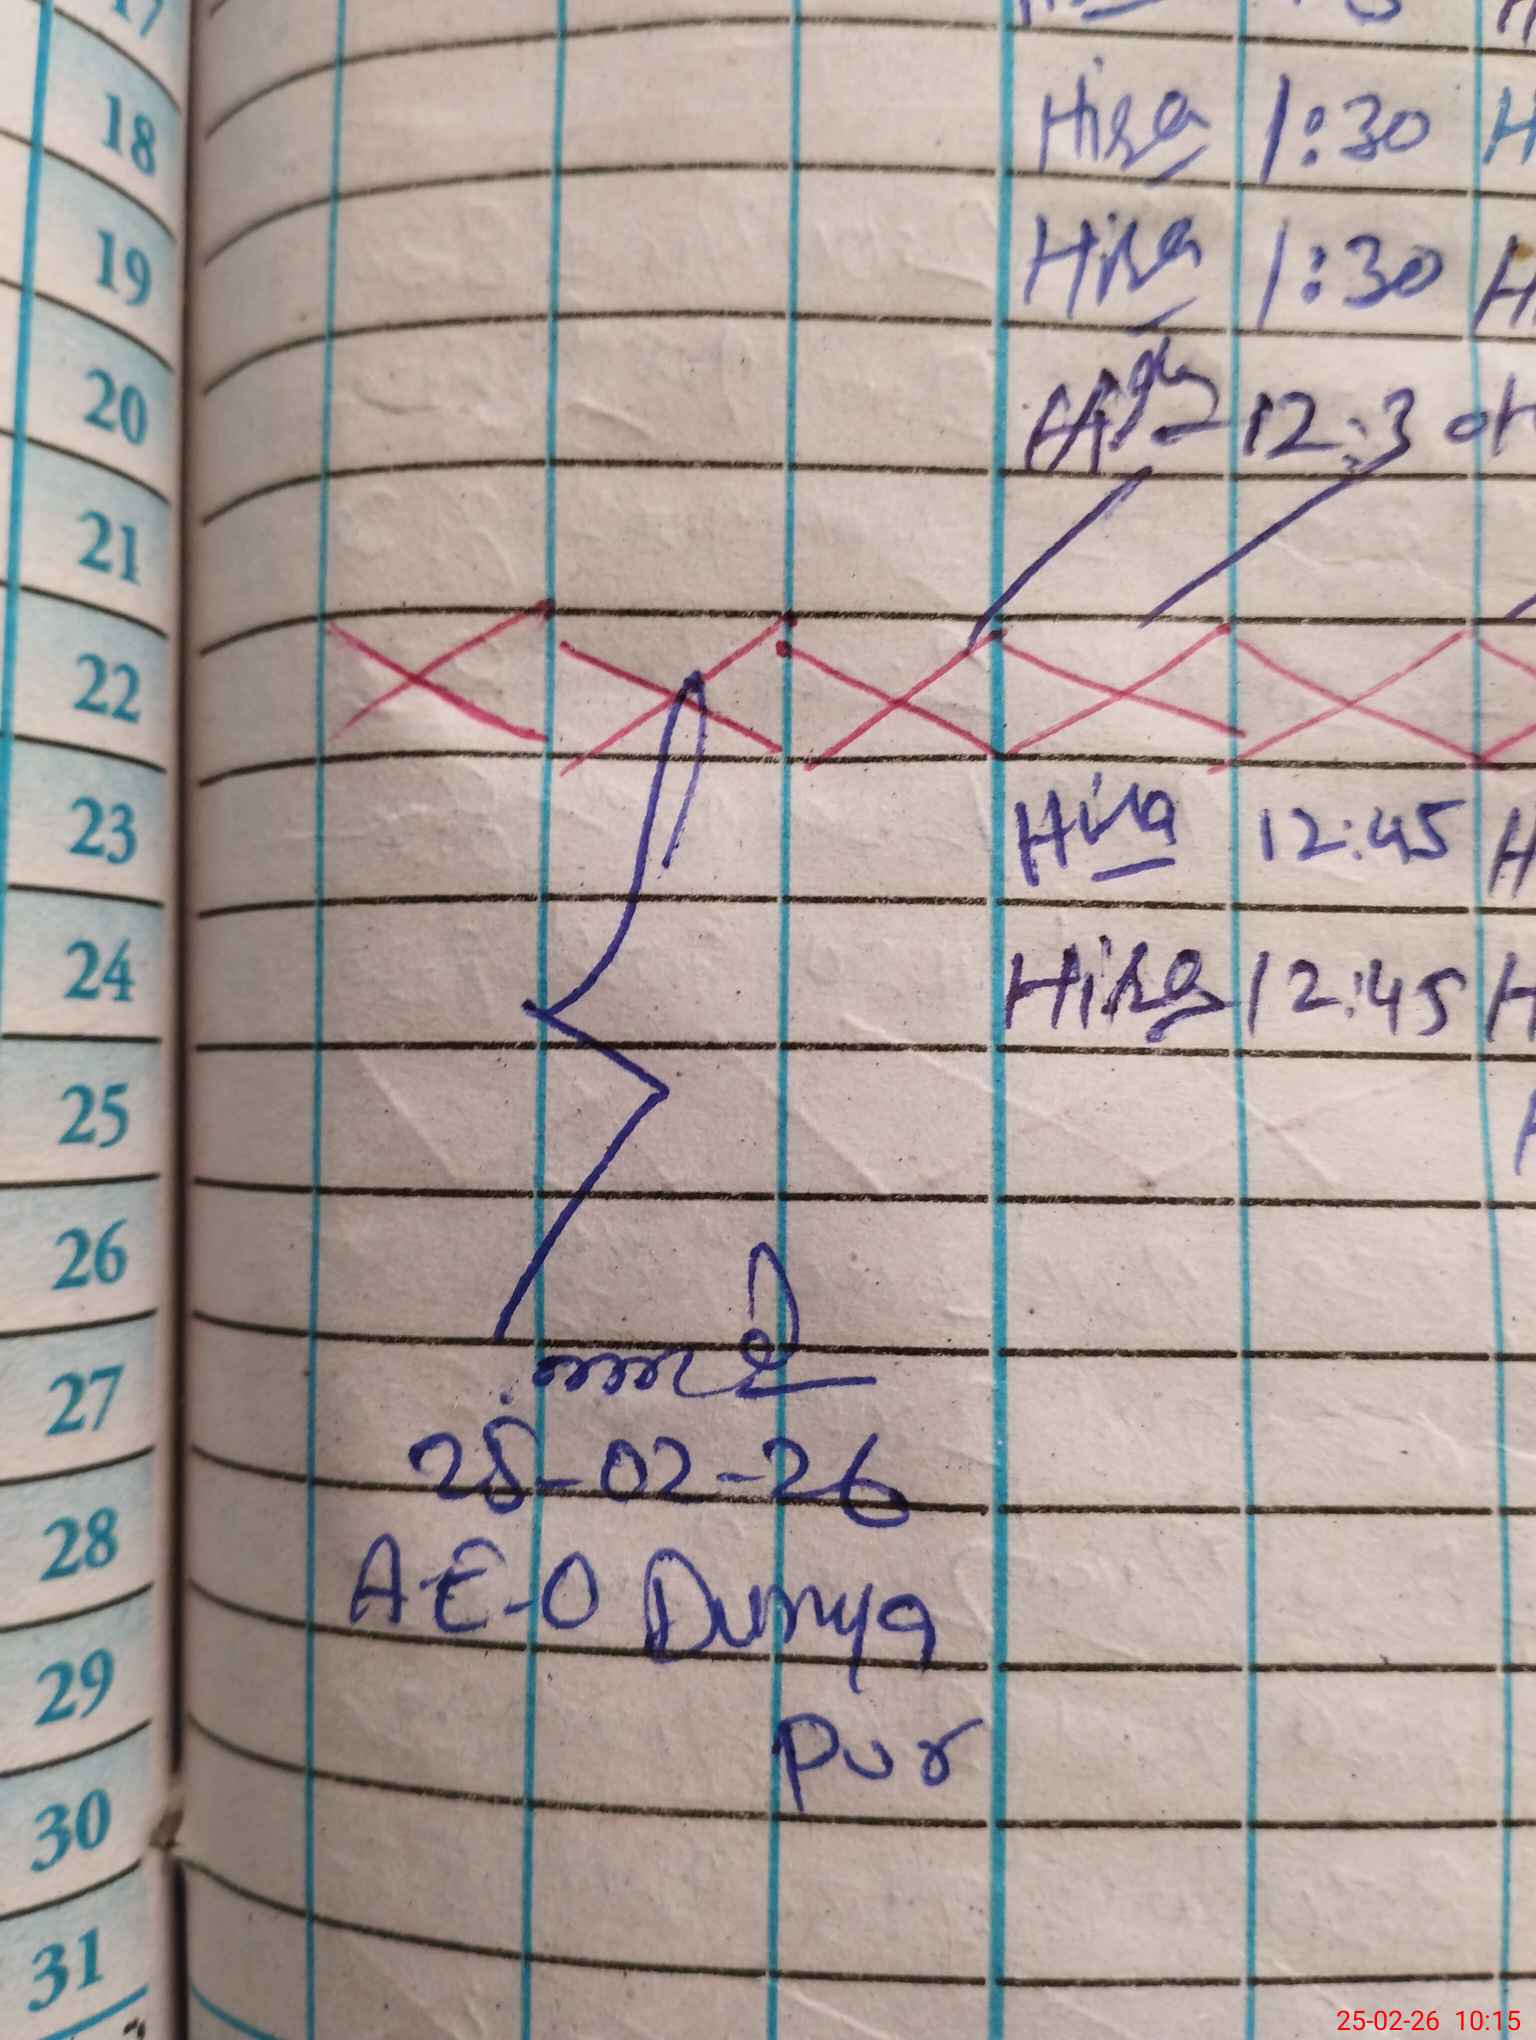 17
18 Hira 1:30 H
19 Hira 1:30 H
20 12:30 H
21
22
23 Hira 12:45 H
24 Hira 12:45 H
25
26
27
25-02-26
28
A-E-O Dunya
29
Pur
30
31
25-02-26 10:15